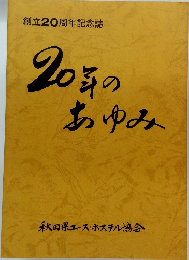 創立20周年記念誌
20年の
あゆみ
秋田県ユースホステル協会